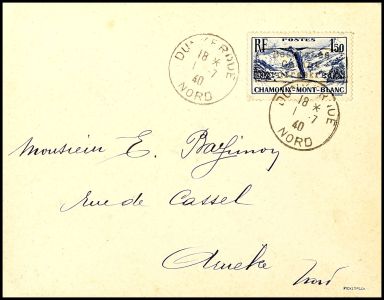 DUNKERQUE
18 *
1 - 7
40
NORD
POSTES
RF 1f50
CHAMONIX-MONT-BLANC
DUNKERQUE
18 *
1 - 7
40
NORD
Monsieur E.
rue de Cassel
Nord